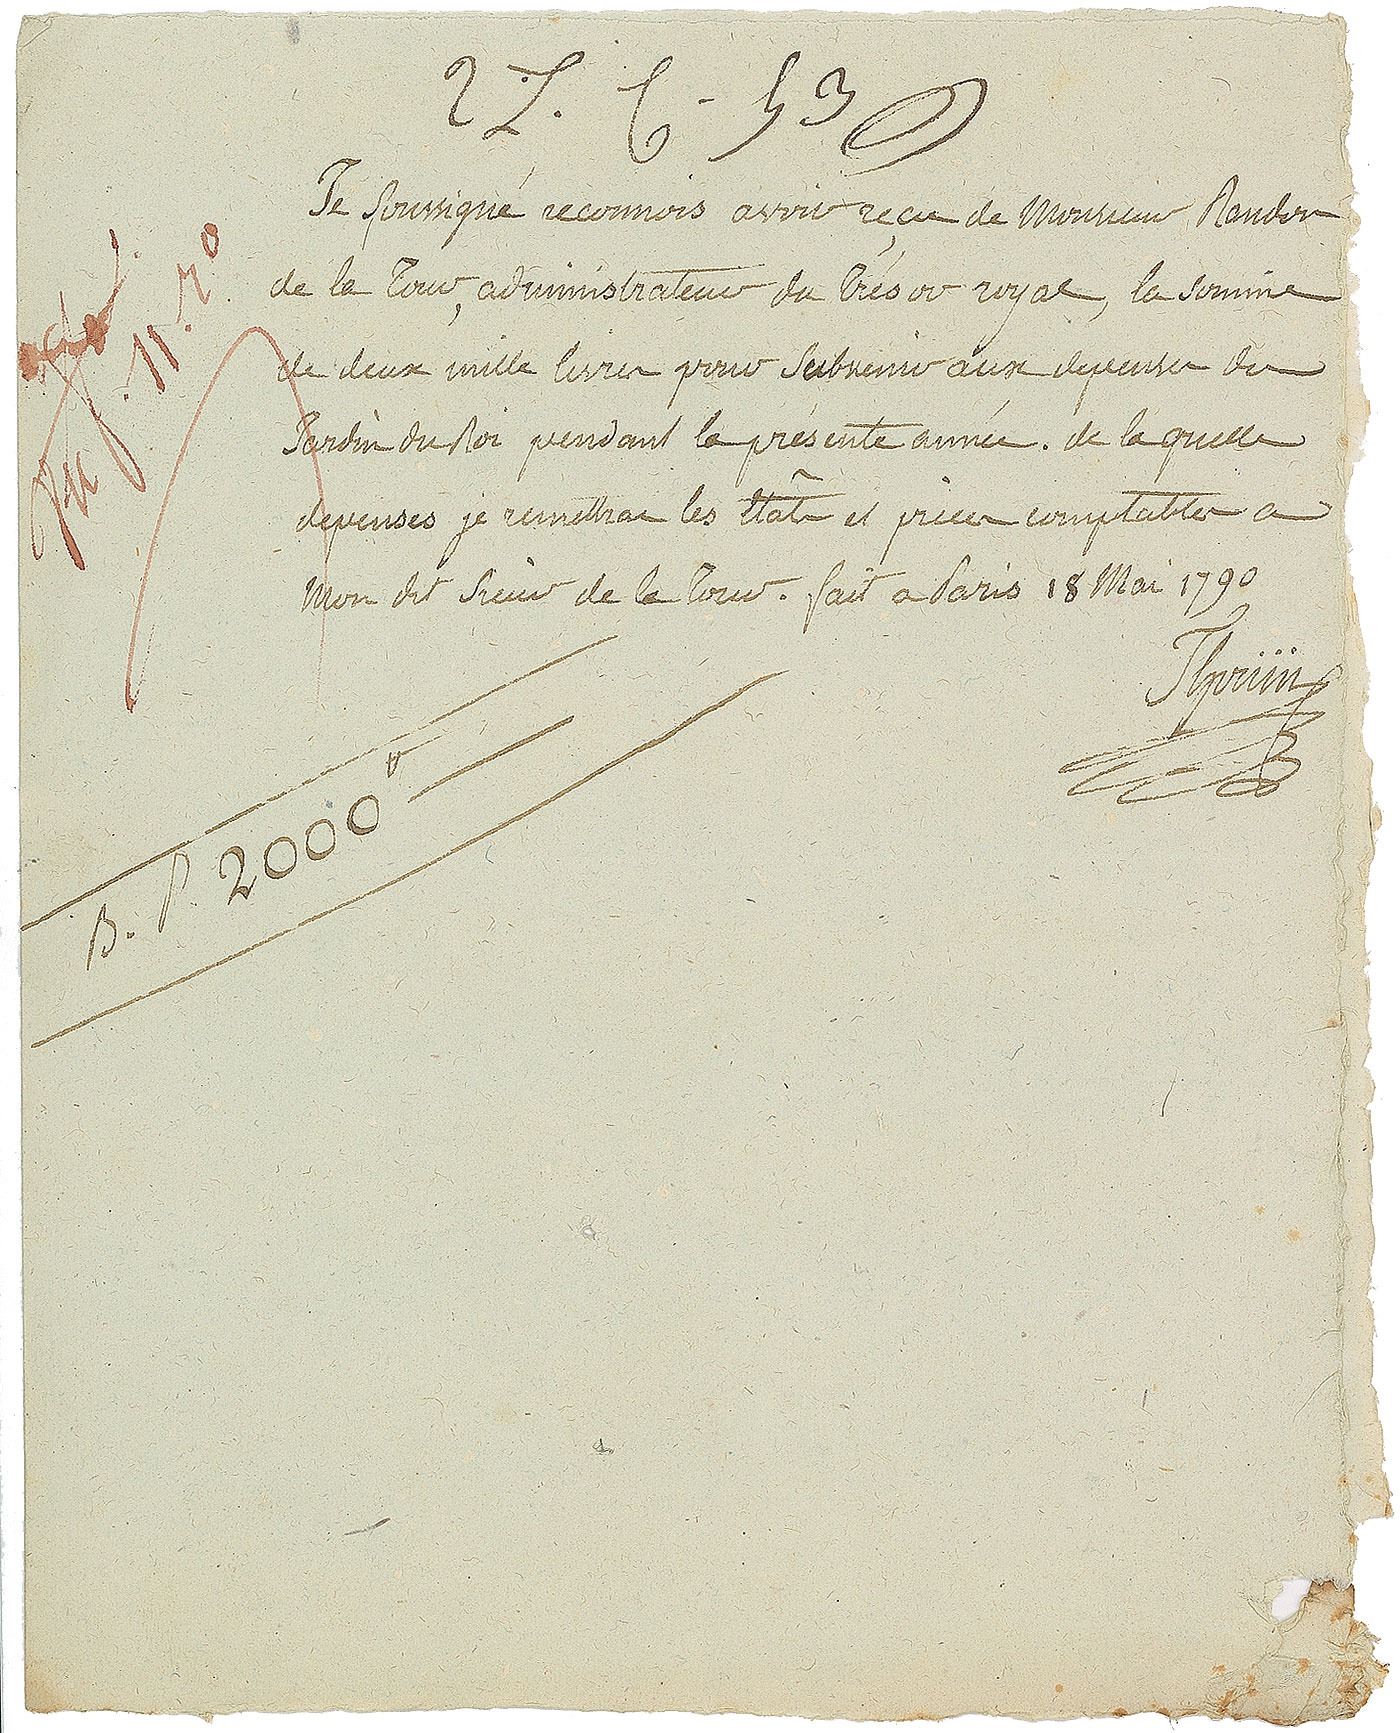 Je soussigné reconnois avoir reçu de Monsieur Randon
de la Tour, administrateur du Trésor royal, la somme
de deux mille livres pour subvenir aux depenses du
Jardin du Roi pendant la présente année. de la quelle
depenses je remettrai les Etats et pieces comptables a
Mon dit Sieur de la Tour. fait a Paris 18 Mai 1790
Thoüin
B. P. 2000